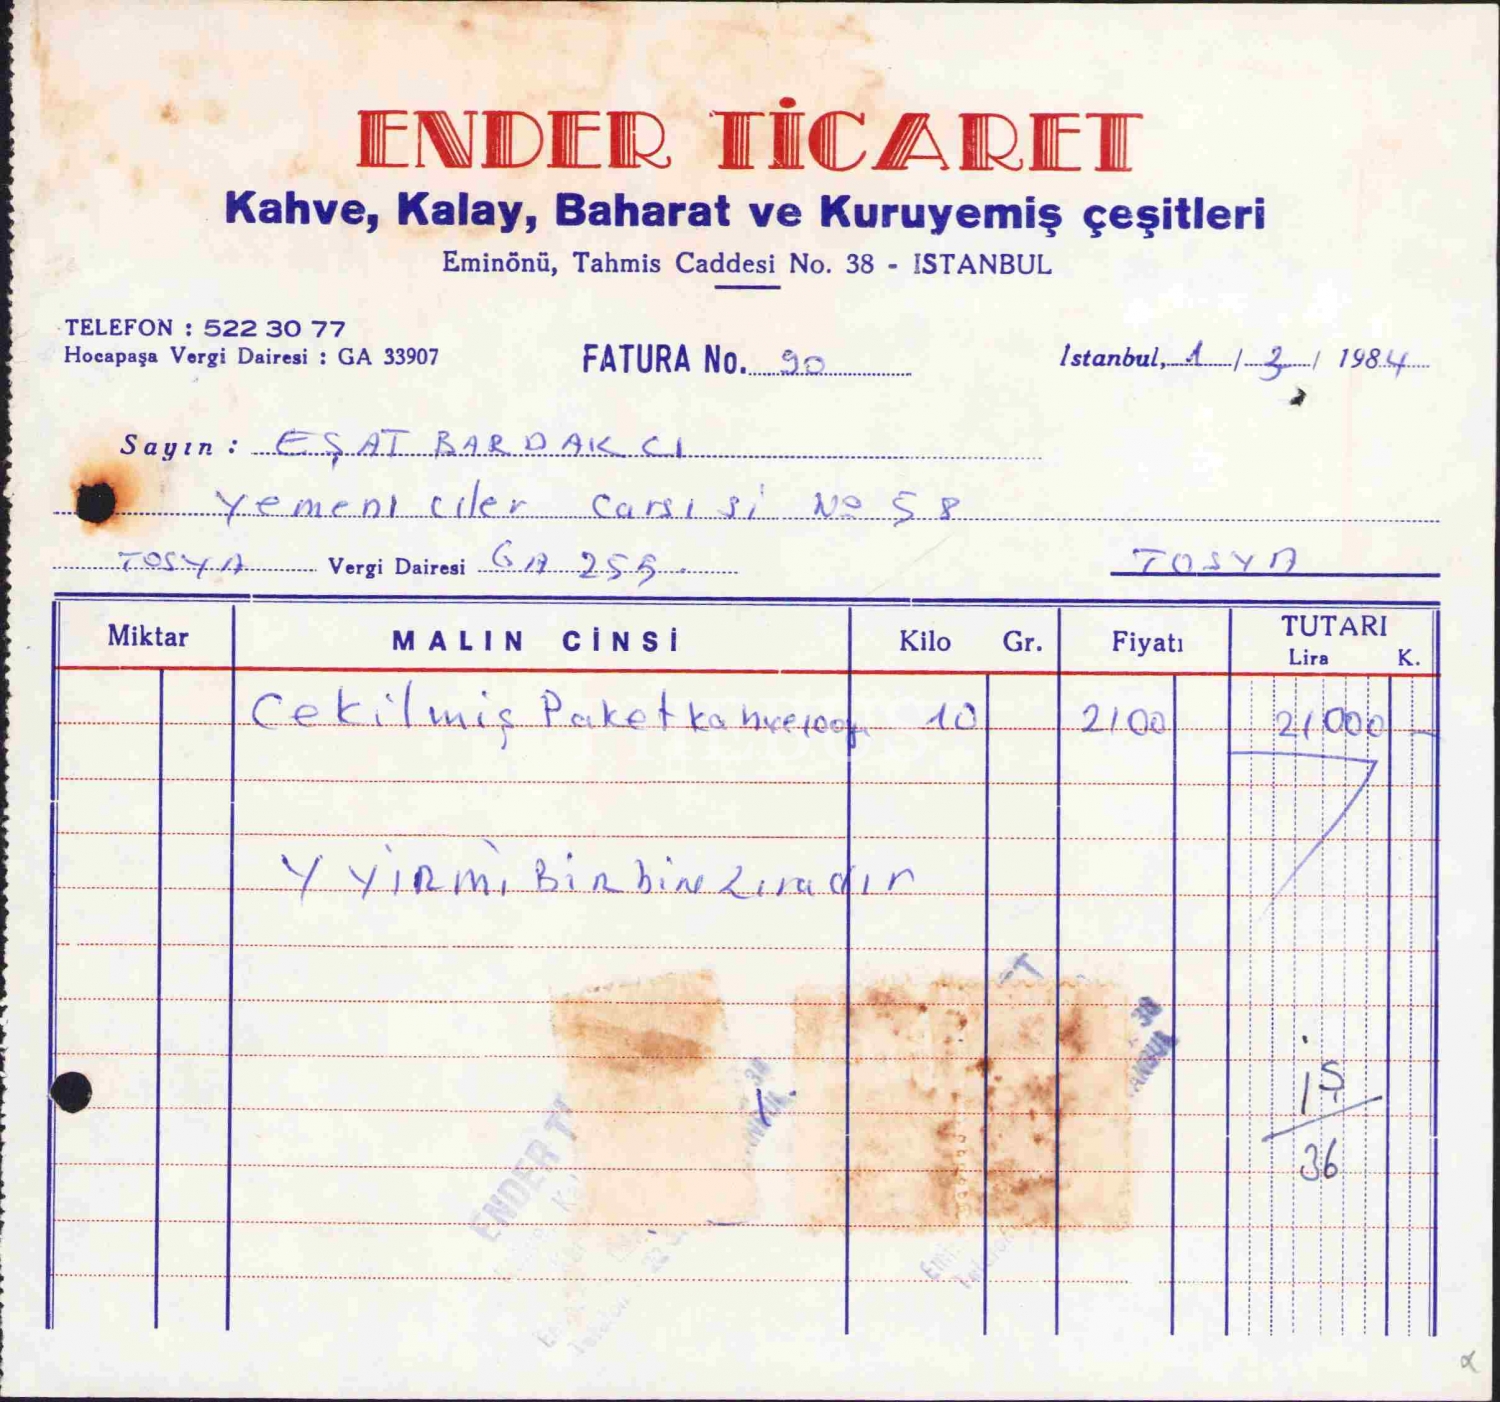 ENDER TİCARET
Kahve, Kalay, Baharat ve Kuruyemiş çeşitleri
Eminönü, Tahmis Caddesi No. 38 - ISTANBUL
TELEFON : 522 30 77
Hocapaşa Vergi Dairesi : GA 33907
FATURA No. 90
Istanbul, 1 / 3 / 1984
Sayın : EŞAT BARDAKCI
Yemeniciler Carsısi No 58
TOSYA Vergi Dairesi GA 255
TOSYA
Miktar MALIN CİNSİ Kilo Gr. Fiyatı TUTARI
Lira K.
Cekilmiş Paket kahve 10 2100 21000 -
Y YİRMİ Bir bin Liradır
ENDER Tİ
15
36